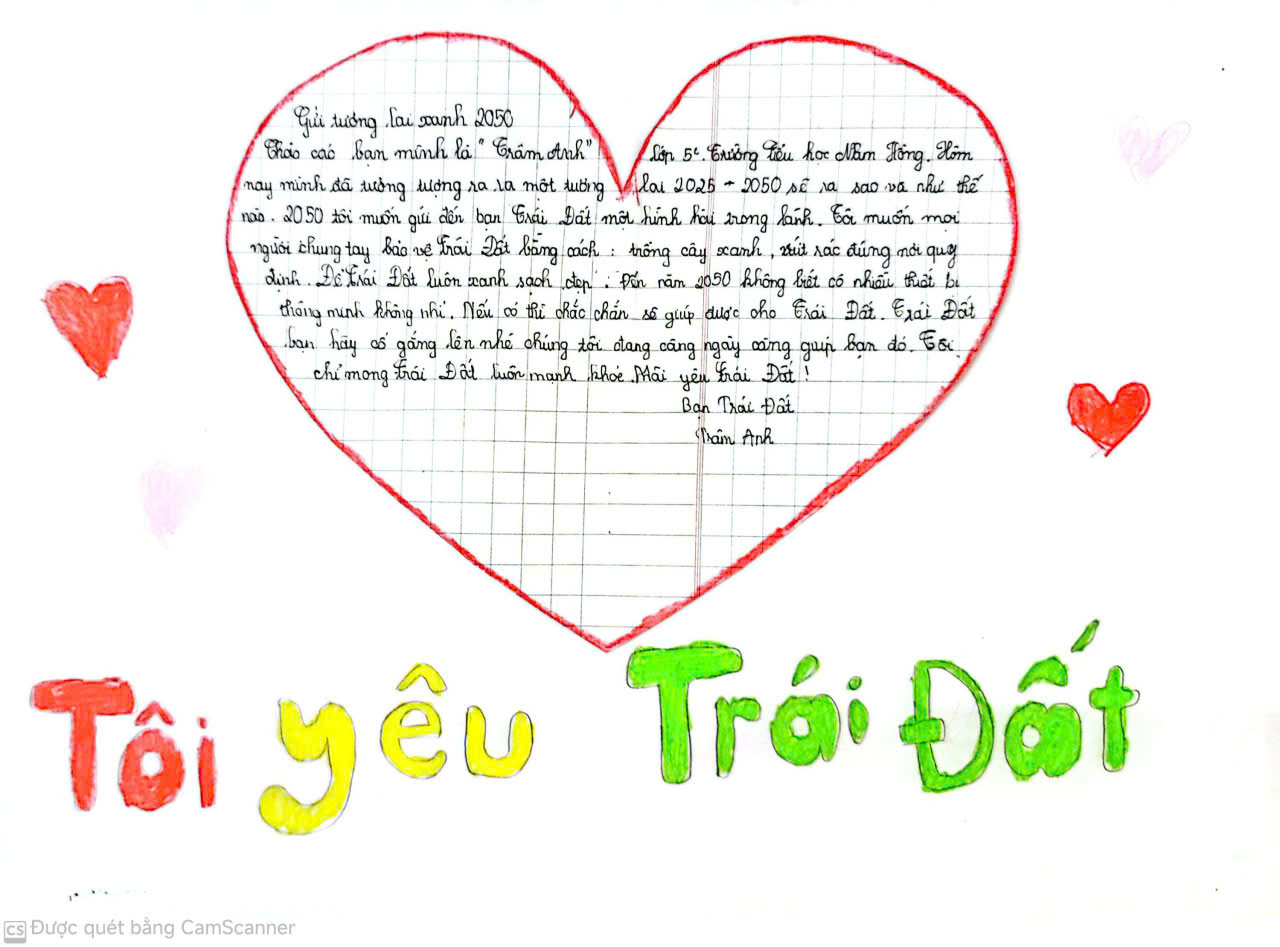 Gửi tương lai xanh 2050
Chào các bạn mình là "Trâm Anh" lớp 5c. Trường Tiểu học Nấm Hồng. Hôm
nay mình đã tưởng tượng ra ra một tương lai 2025 → 2050 sẽ ra sao và như thế
nào. 2050 tôi muốn gửi đến bạn Trái Đất một hình hài trong lành. Tôi muốn mọi
người chung tay bảo vệ Trái Đất bằng cách : trồng cây xanh, vứt rác đúng nơi quy
định. Để Trái Đất luôn xanh sạch đẹp. Đến năm 2050 không biết có nhiều thiết bị
thông minh không nhỉ. Nếu có thì chắc chắn sẽ giúp được cho Trái Đất. Trái Đất
bạn hãy cố gắng lên nhé chúng tôi đang càng ngày càng giúp bạn đó. Tôi
chỉ mong Trái Đất luôn mạnh khỏe. Mãi yêu Trái Đất !
Bạn Trái Đất
Trâm Anh
Tôi yêu Trái Đất
CS Được quét bằng CamScanner